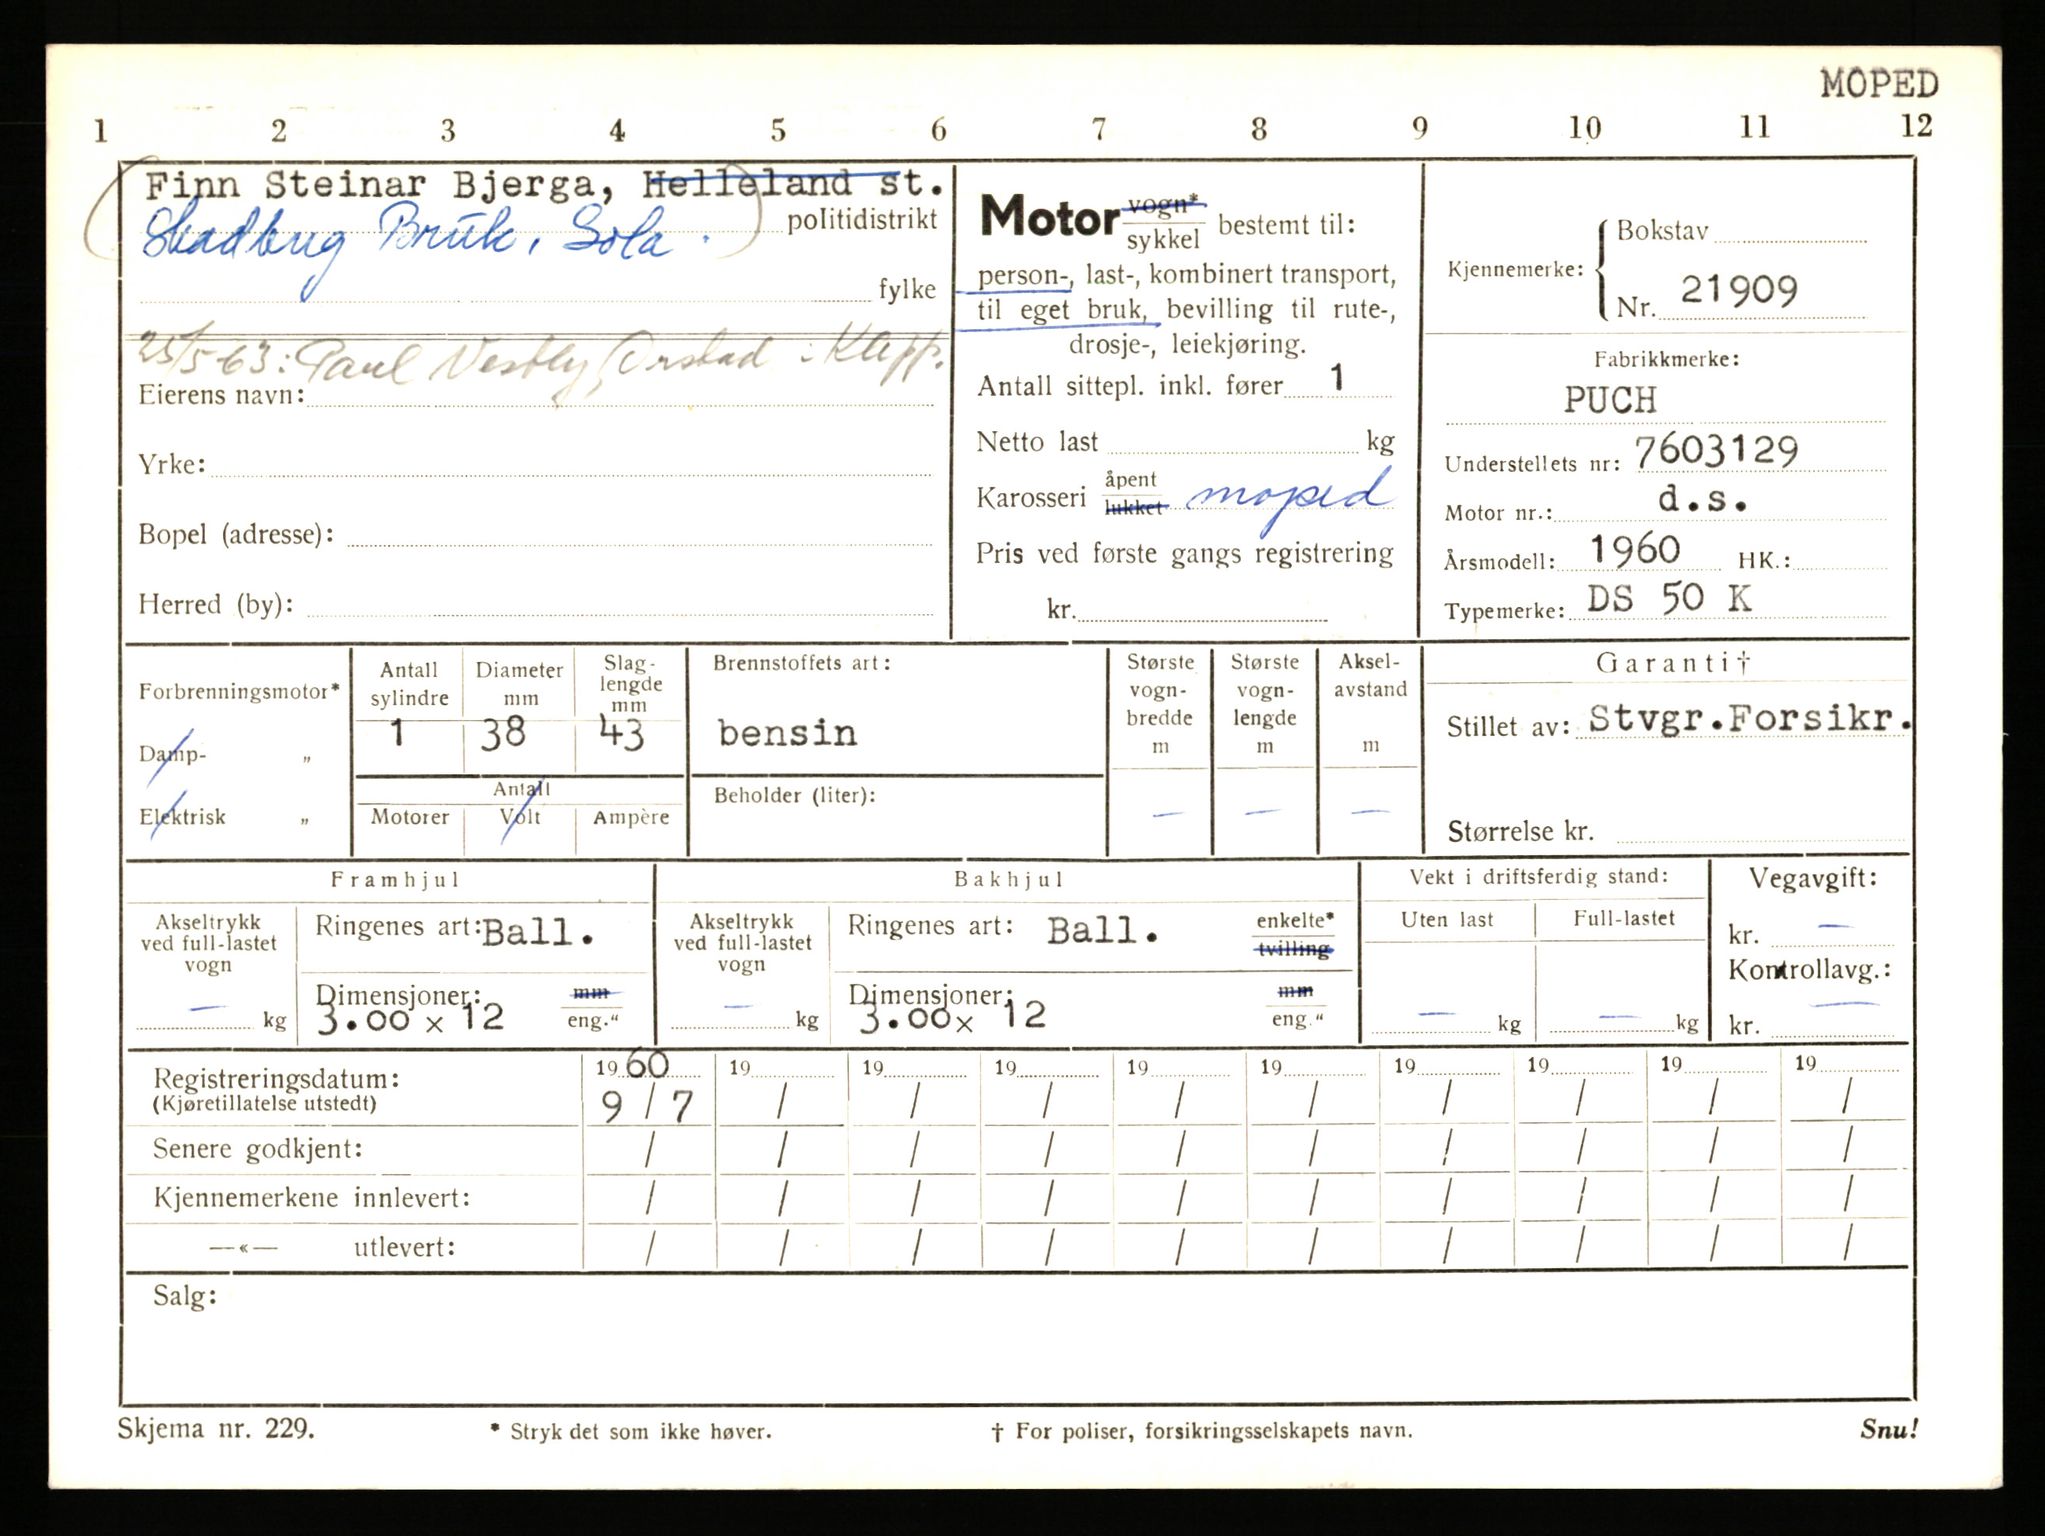 MOPED
1 2 3 4 5 6 7 8 9 10 11 12
Finn Steinar Bjerga, Helleland st.
Skadberg Bruk, Sola.
politidistrikt
fylke
25/5-63: Paul Vestly, Orstad i Klepp.
Eierens navn:
Yrke:
Bopel (adresse):
Herred (by):
Motor vogn* sykkel bestemt til:
person-, last-, kombinert transport,
til eget bruk, bevilling til rute-,
drosje-, leiekjøring.
Antall sittepl. inkl. fører 1
Netto last kg
Karosseri åpent lukket moped
Pris ved første gangs registrering
kr.
Kjennemerke: Bokstav
Nr. 21909
Fabrikkmerke:
PUCH
Understellets nr: 7603129
Motor nr.: d.s.
Årsmodell: 1960 HK.:
Typemerke: DS 50 K
Forbrenningsmotor*
Damp- „
Elektrisk „
Antall sylindre
1
Diameter mm
38
Slag-
lengde
mm
43
Antall
Motorer Volt Ampère
Brennstoffets art:
bensin
Beholder (liter):
Største
vogn-
bredde
m
—
Største
vogn-
lengde
m
—
Aksel-
avstand
m
—
Garanti†
Stillet av: Stvgr.Forsikr.
Størrelse kr.
Framhjul
Akseltrykk
ved full-lastet
vogn
— kg
Ringenes art: Ball.
Dimensjoner: mm
3.00 x 12 eng."
Bakhjul
Akseltrykk
ved full-lastet
vogn
— kg
Ringenes art: Ball. enkelte* tvilling
Dimensjoner: mm
3.00x 12 eng."
Vekt i driftsferdig stand:
Uten last Full-lastet
— kg — kg
Vegavgift:
kr. —
Kontrollavg.:
kr. —
Registreringsdatum: 1960 19 19 19 19 19 19 19 19 19
(Kjøretillatelse utstedt) 9 / 7 / / / / / / / / /
Senere godkjent: / / / / / / / / / /
Kjennemerkene innlevert: / / / / / / / / / /
—«— utlevert: / / / / / / / / / /
Salg:
Skjema nr. 229. * Stryk det som ikke høver. † For poliser, forsikringsselskapets navn. Snu!